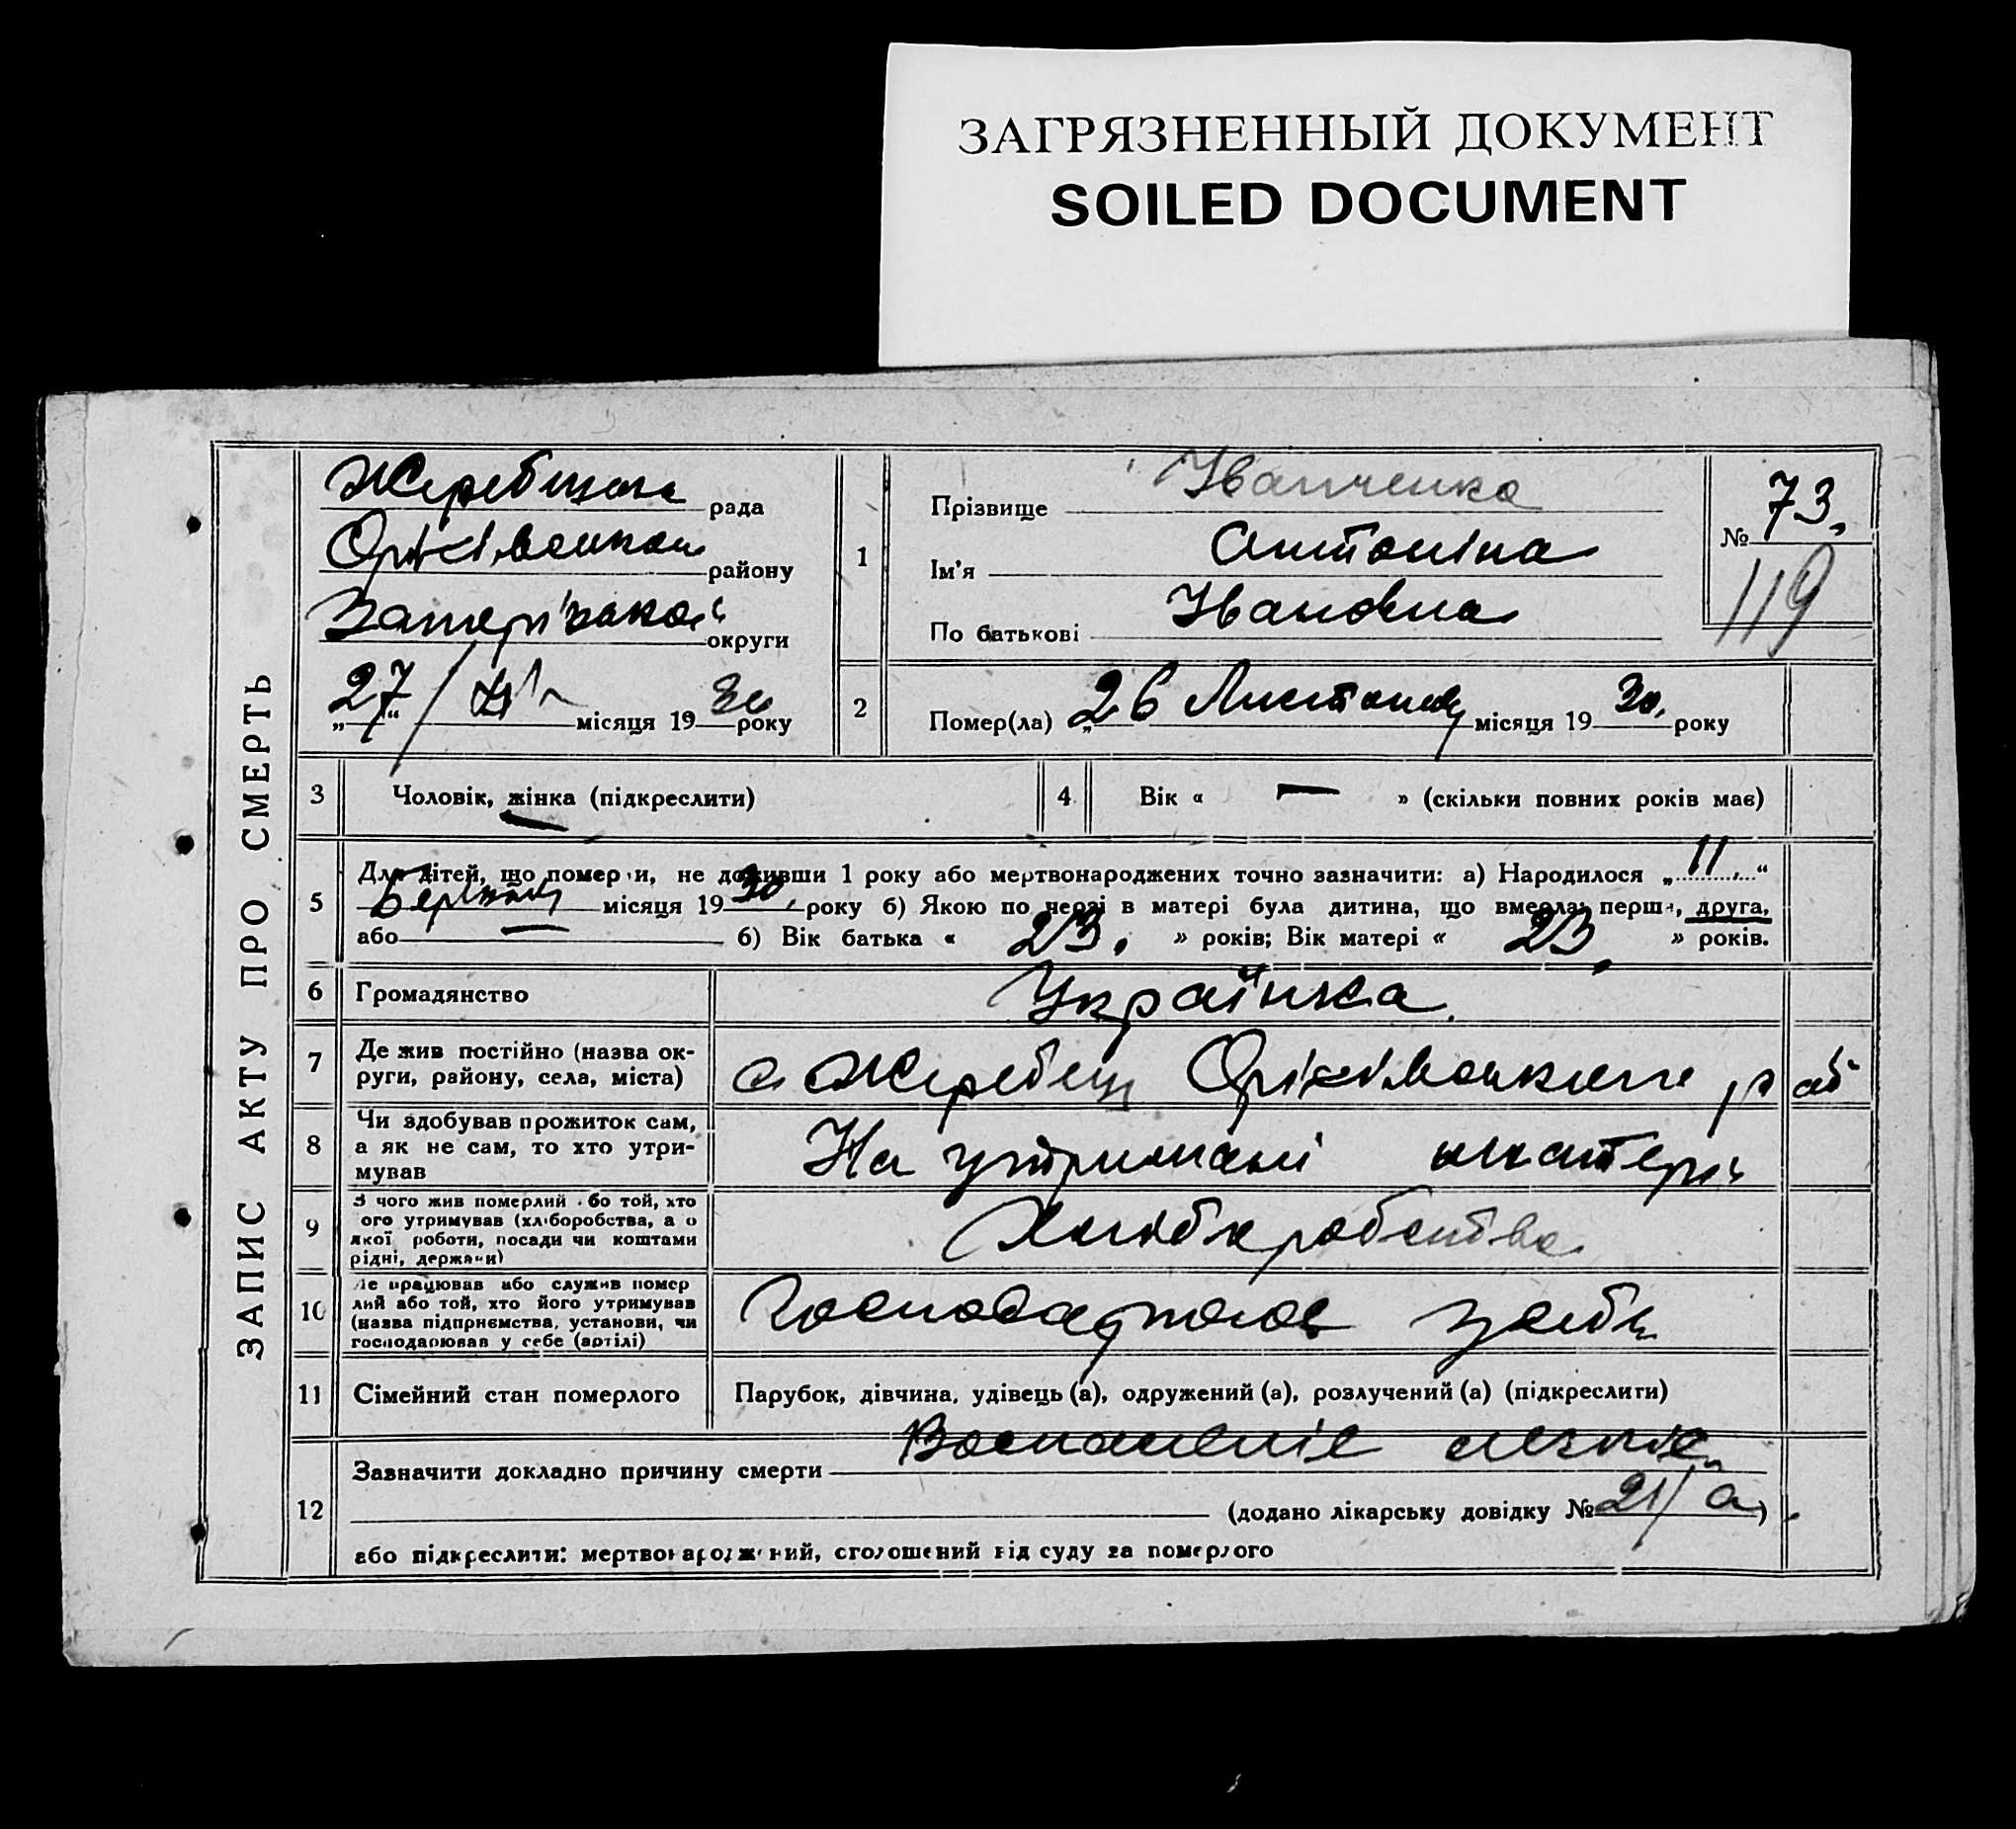 ЗАГРЯЗНЕННЫЙ ДОКУМЕНТ
SOILED DOCUMENT
ЗАПИС АКТУ ПРО СМЕРТЬ
рада
району
округи
„27“ місяця 1930 року
1
Прізвище Іванченко
Ім'я Антоніна
По батькові Івановна
№ 73.
119
2
Помер(ла) „26 Листопаду місяця 1930. року
3 Чоловік, жінка (підкреслити)
4 Вік « — » (скільки повних років має)
5 Для дітей, що померли, не доживши 1 року або мертвонароджених точно зазначити: а) Народилося „11.“
Березня місяця 1930. року б) Якою по черзі в матері була дитина, що вмерла: перша, друга,
або — б) Вік батька « 23. » років; Вік матері « 23 » років.
6 Громадянство Українка
7 Де жив постійно (назва ок-
руги, району, села, міста) с Жеребец
8 Чи здобував прожиток сам,
а як не сам, то хто утри-
мував На утримані матері
9 З чого жив померлий або той, хто
ого утримував (хліборобства, а о
якої роботи, посади чи коштами
рідні, держави) Хліборобство
10 Де працював або служив помер
лий або той, хто його утримував
(назва підприємства, установи, чи
господарював у себе (артілі)
11 Сімейний стан померлого Парубок, дівчина, удівець (а), одружений (а), розлучений (а) (підкреслити)
12 Зазначити докладно причину смерти Воспаленіе легкіх
(додано лікарську довідку № 21/а)
або підкреслити: мертвонароджений, оголошений від суду за померлого